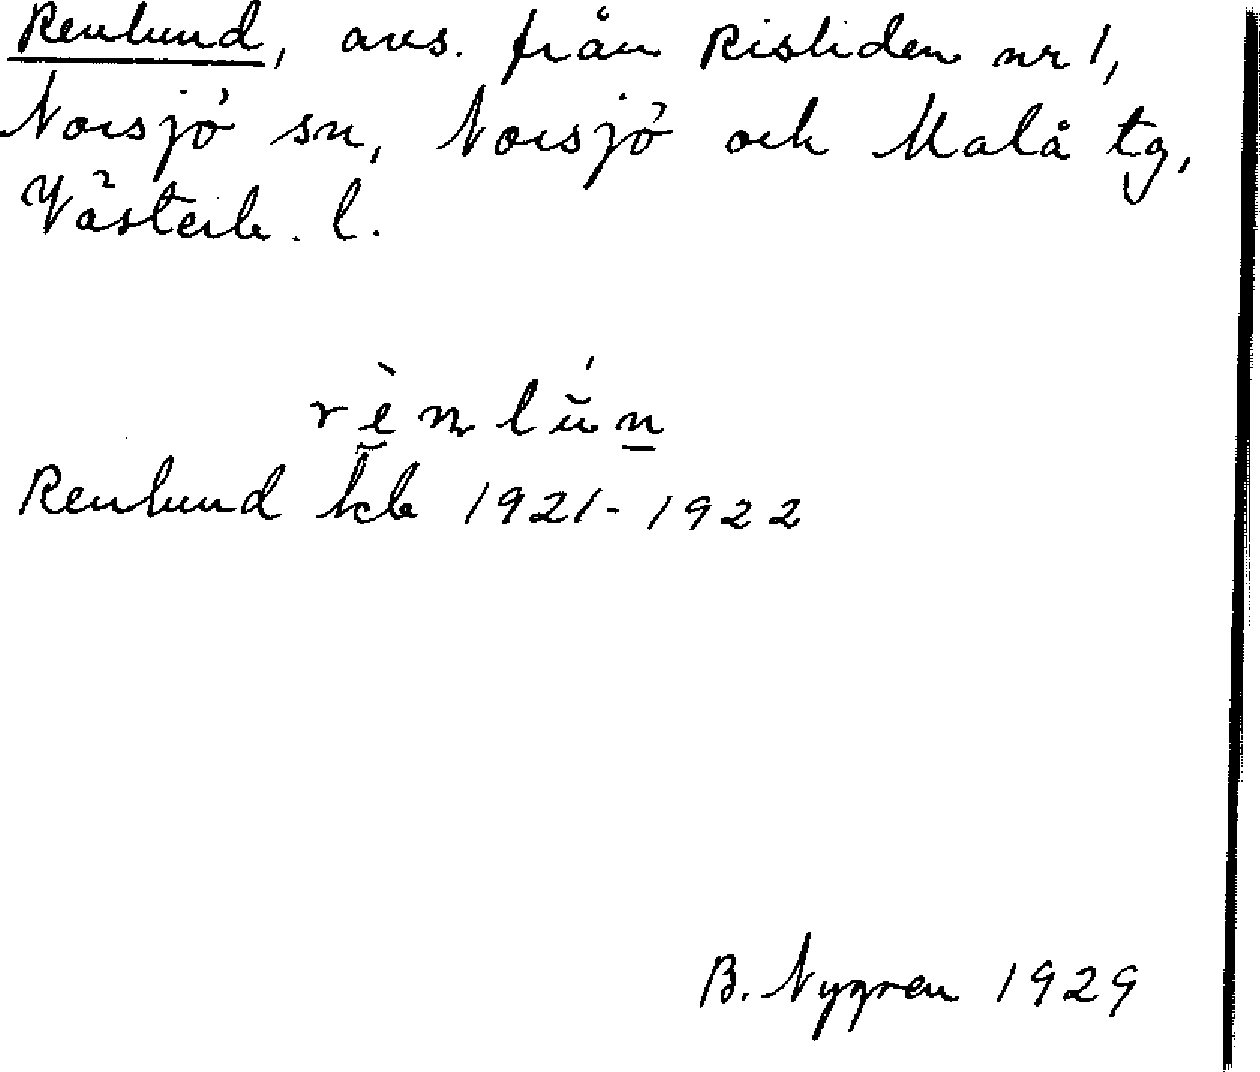 Renlund, avs. från Risliden nr 1,
Norsjö sn, Norsjö och Malå tg,
Västerb. l.
rènlŭ́n
Renlund kb 1921-1922
B. Nygren 1929